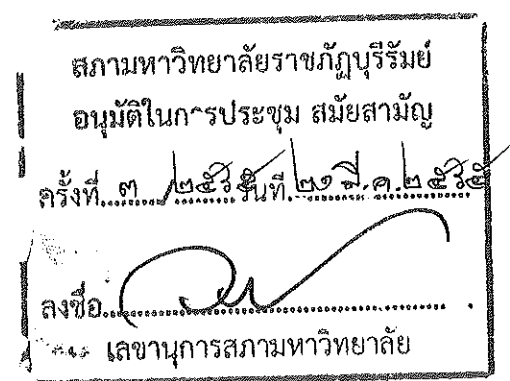 สภามหาวิทยาลัยราชภัฏบุรีรัมย์
อนุมัติในการประชุม สมัยสามัญ
ครั้งที่ ๓ /๒๕๖๕ วันที่ ๒๑ มี.ค. ๒๕๖๕
ลงชื่อ
เลขานุการสภามหาวิทยาลัย